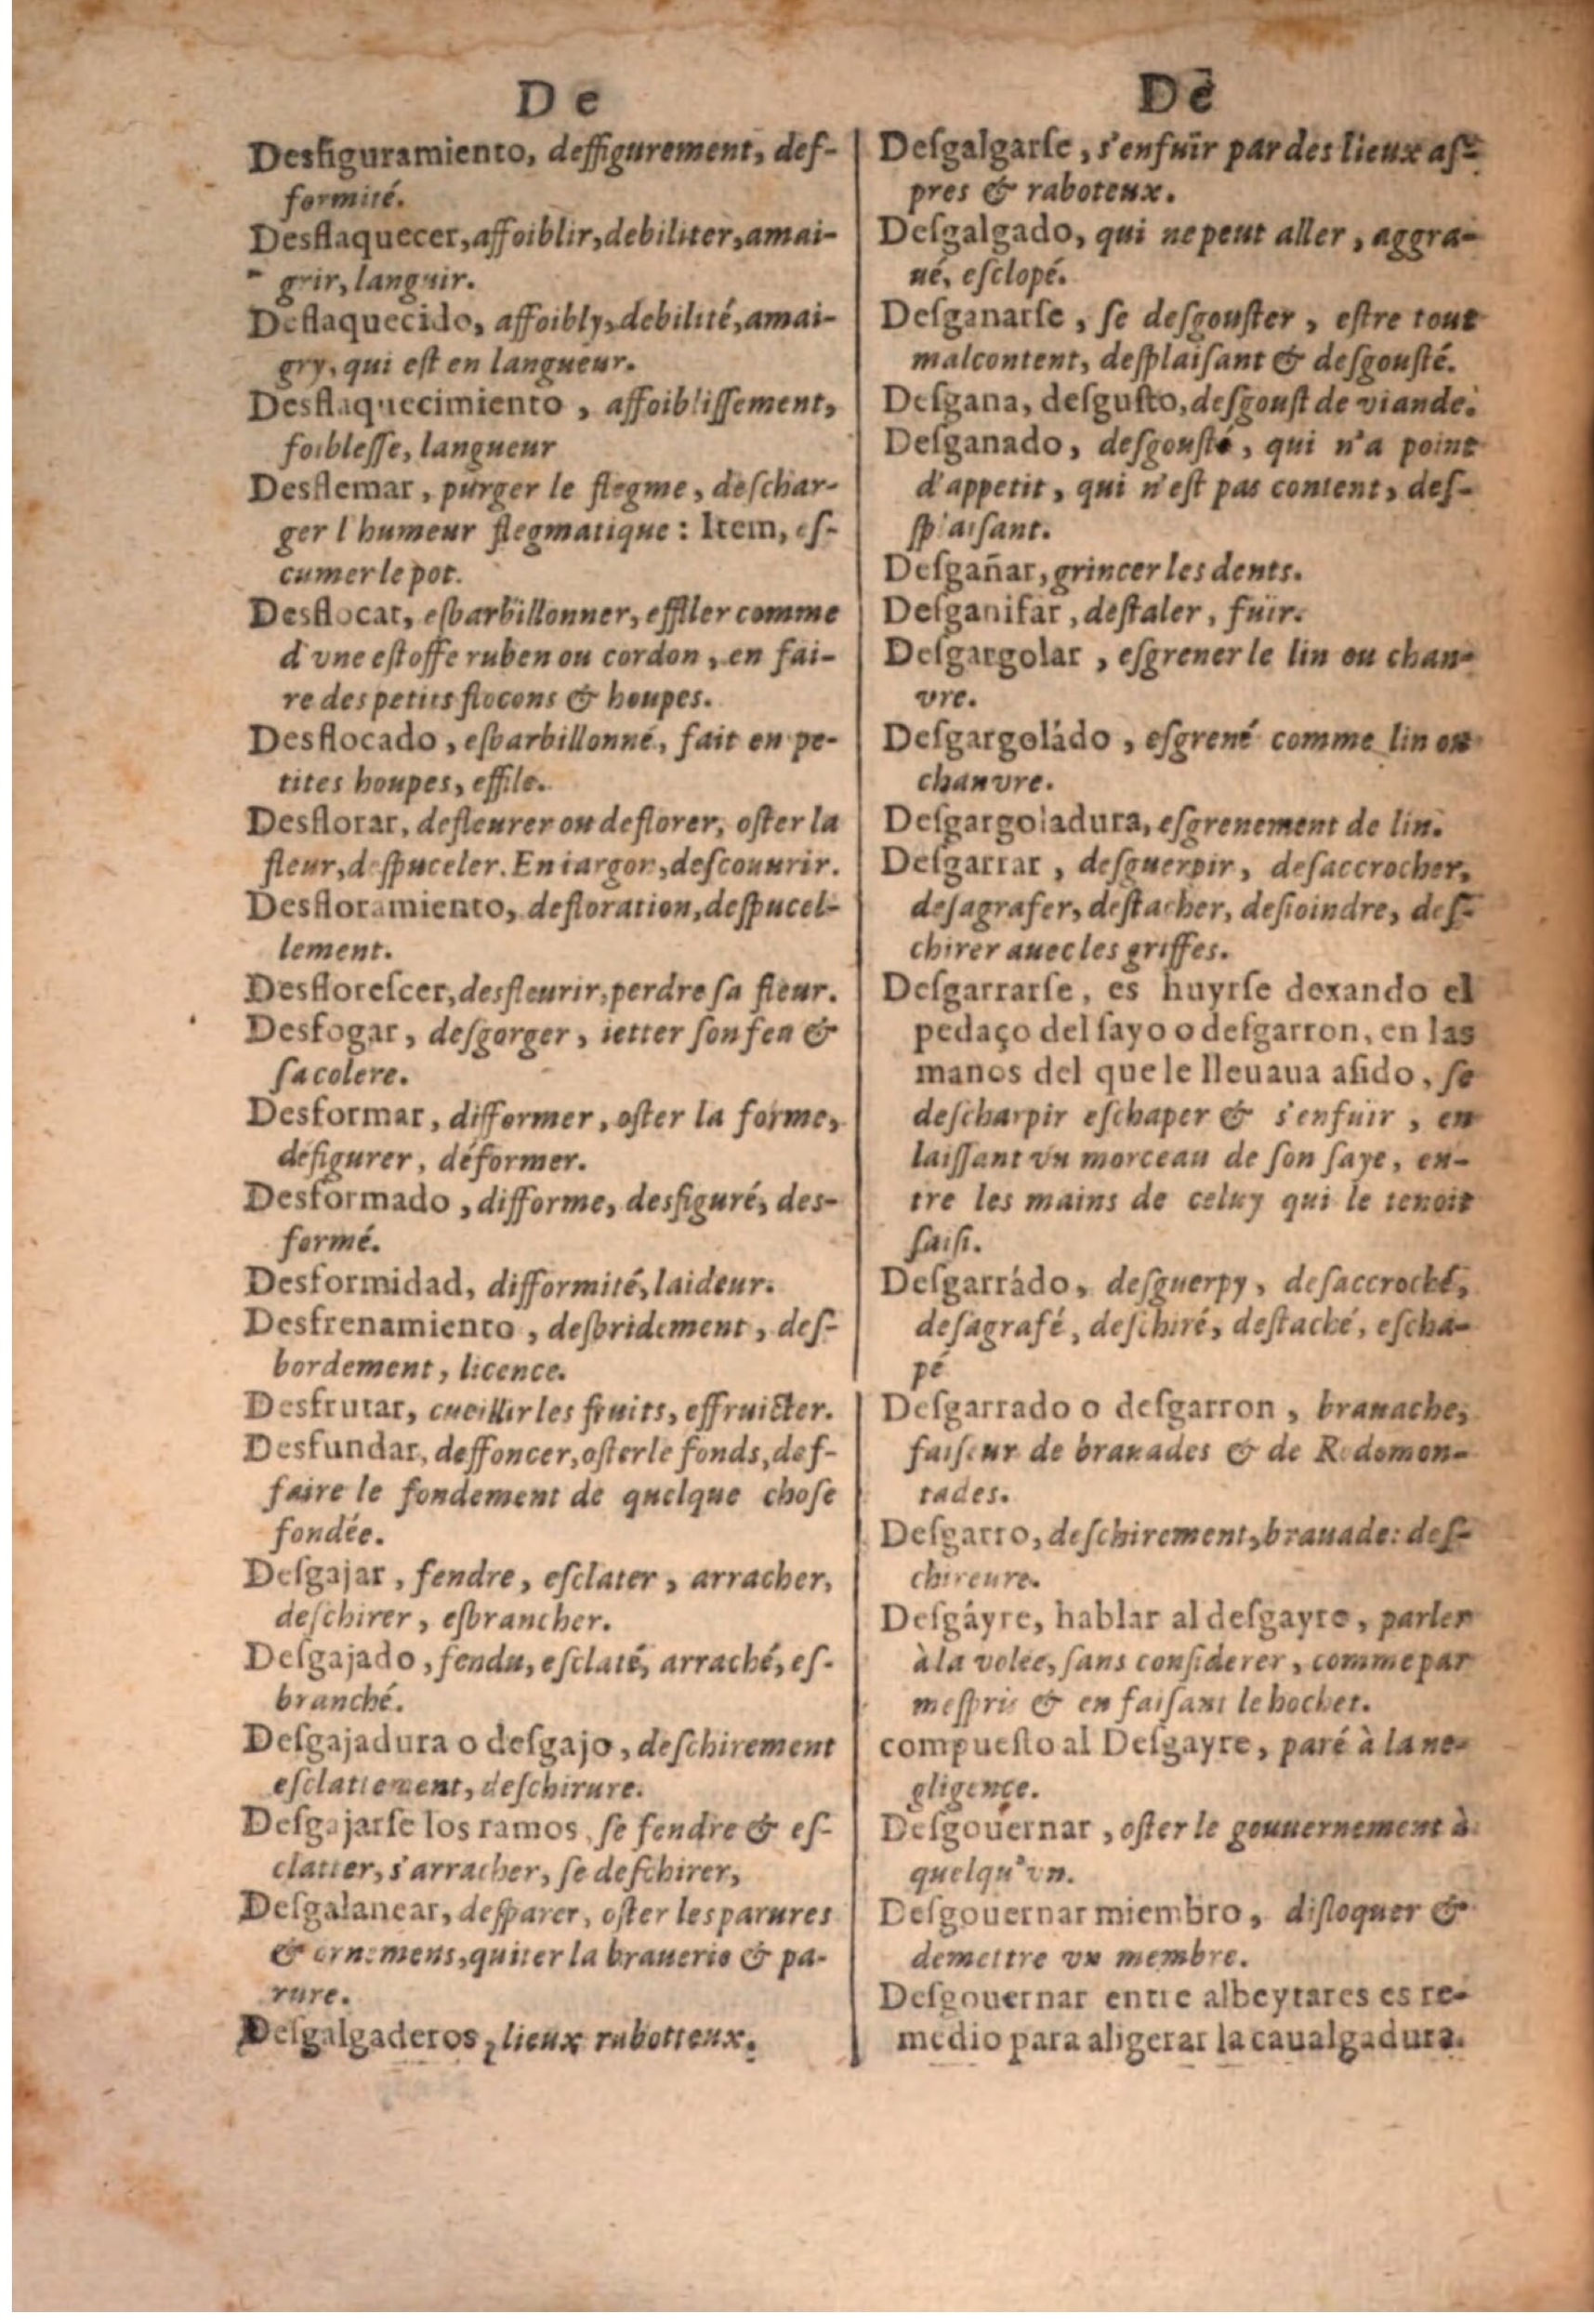 De
Desfiguramiento, deffigurement, def-
formité.
Desflaquecer, affoiblir, debiliter, amai-
grir, languir.
Deflaquecido, affoibly, debilité, amai-
gry, qui eſt en langueur.
Desflaquecimiento, affoibliſſement,
foibleſſe, langueur
Desflemar, purger le flegme, deſchar-
ger l'humeur flegmatique: Item, eſ-
cumer le pot.
Desflocar, eſbarbillonner, effiler comme
d'vne eſtoffe ruben ou cordon, en fai-
re des petits flocons & houpes.
Desflocado, eſbarbillonné, fait en pe-
tites houpes, effile.
Desflorar, defleurer ou deflorer, oſter la
fleur, deſpuceler. En iargon, deſcouurir.
Desfloramiento, defloration, deſpucel-
lement.
Desfloreſcer, desfleurir, perdre ſa fleur.
Desfogar, deſgorger, ietter ſon feu &
ſa colere.
Desformar, difformer, oſter la forme,
défigurer, déformer.
Desformado, difforme, desfiguré, des-
formé.
Desformidad, difformité, laideur.
Desfrenamiento, deſbridement, deſ-
bordement, licence.
Desfrutar, cueillir les fruits, effruicter.
Desfundar, deffoncer, oſter le fonds, def-
faire le fondement de quelque choſe
fondée.
Deſgajar, fendre, eſclater, arracher,
deſchirer, eſbrancher.
Deſgajado, fendu, eſclaté, arraché, eſ-
branché.
Deſgajadura o deſgajo, deſchirement
eſclattement, deſchirure.
Deſgajarſe los ramos, ſe fendre & eſ-
clatter, s'arracher, ſe deſchirer,
Deſgalanear, deſparer, oſter les parures
& ornemens, quitter la brauerie & pa-
rure.
Deſgalgaderos, lieux rabotteux.
De
Deſgalgarſe, s'enfuïr par des lieux aſ-
pres & raboteux.
Deſgalgado, qui ne peut aller, aggra-
ué, eſclopé.
Deſganarſe, ſe deſgouſter, eſtre tout
malcontent, deſplaiſant & deſgouſté.
Deſgana, deſguſto, deſgouſt de viande.
Deſganado, deſgouſté, qui n'a point
d'appetit, qui n'eſt pas content, deſ-
ſplaiſant.
Deſgañar, grincer les dents.
Deſganifar, deſtaler, fuïr.
Deſgargolar, eſgrener le lin ou chan-
vre.
Deſgargoládo, eſgrené comme lin ou
chanvre.
Deſgargoladura, eſgrenement de lin.
Deſgarrar, deſguerpir, deſaccrocher,
deſagrafer, deſtacher, deſioindre, deſ-
chirer auec les griffes.
Deſgarrarſe, es huyrſe dexando el
pedaço del ſayo o deſgarron, en las
manos del que le lleuaua aſido, ſe
deſcharpir eſchaper & s'enfuïr, en
laiſſant vn morceau de ſon ſaye, en-
tre les mains de celuy qui le tenoit
ſaiſi.
Deſgarrádo, deſguerpy, deſaccroché,
deſagrafé, deſchiré, deſtaché, eſcha-
pé
Deſgarrado o deſgarron, brauache,
faiſeur de brauades & de Rodomon-
tades.
Deſgarro, deſchirement, brauade: deſ-
chireure.
Deſgáyre, hablar al deſgayre, parler
à la volée, ſans conſiderer, comme par
meſpris & en faiſant le hochet.
compueſto al Deſgayre, paré à la ne-
gligence.
Deſgouernar, oſter le gouuernement à
quelqu'vn.
Deſgouernar miembro, diſloquer &
demettre vn membre.
Deſgouernar entre albeytares es re-
medio para aligerar la caualgadura.